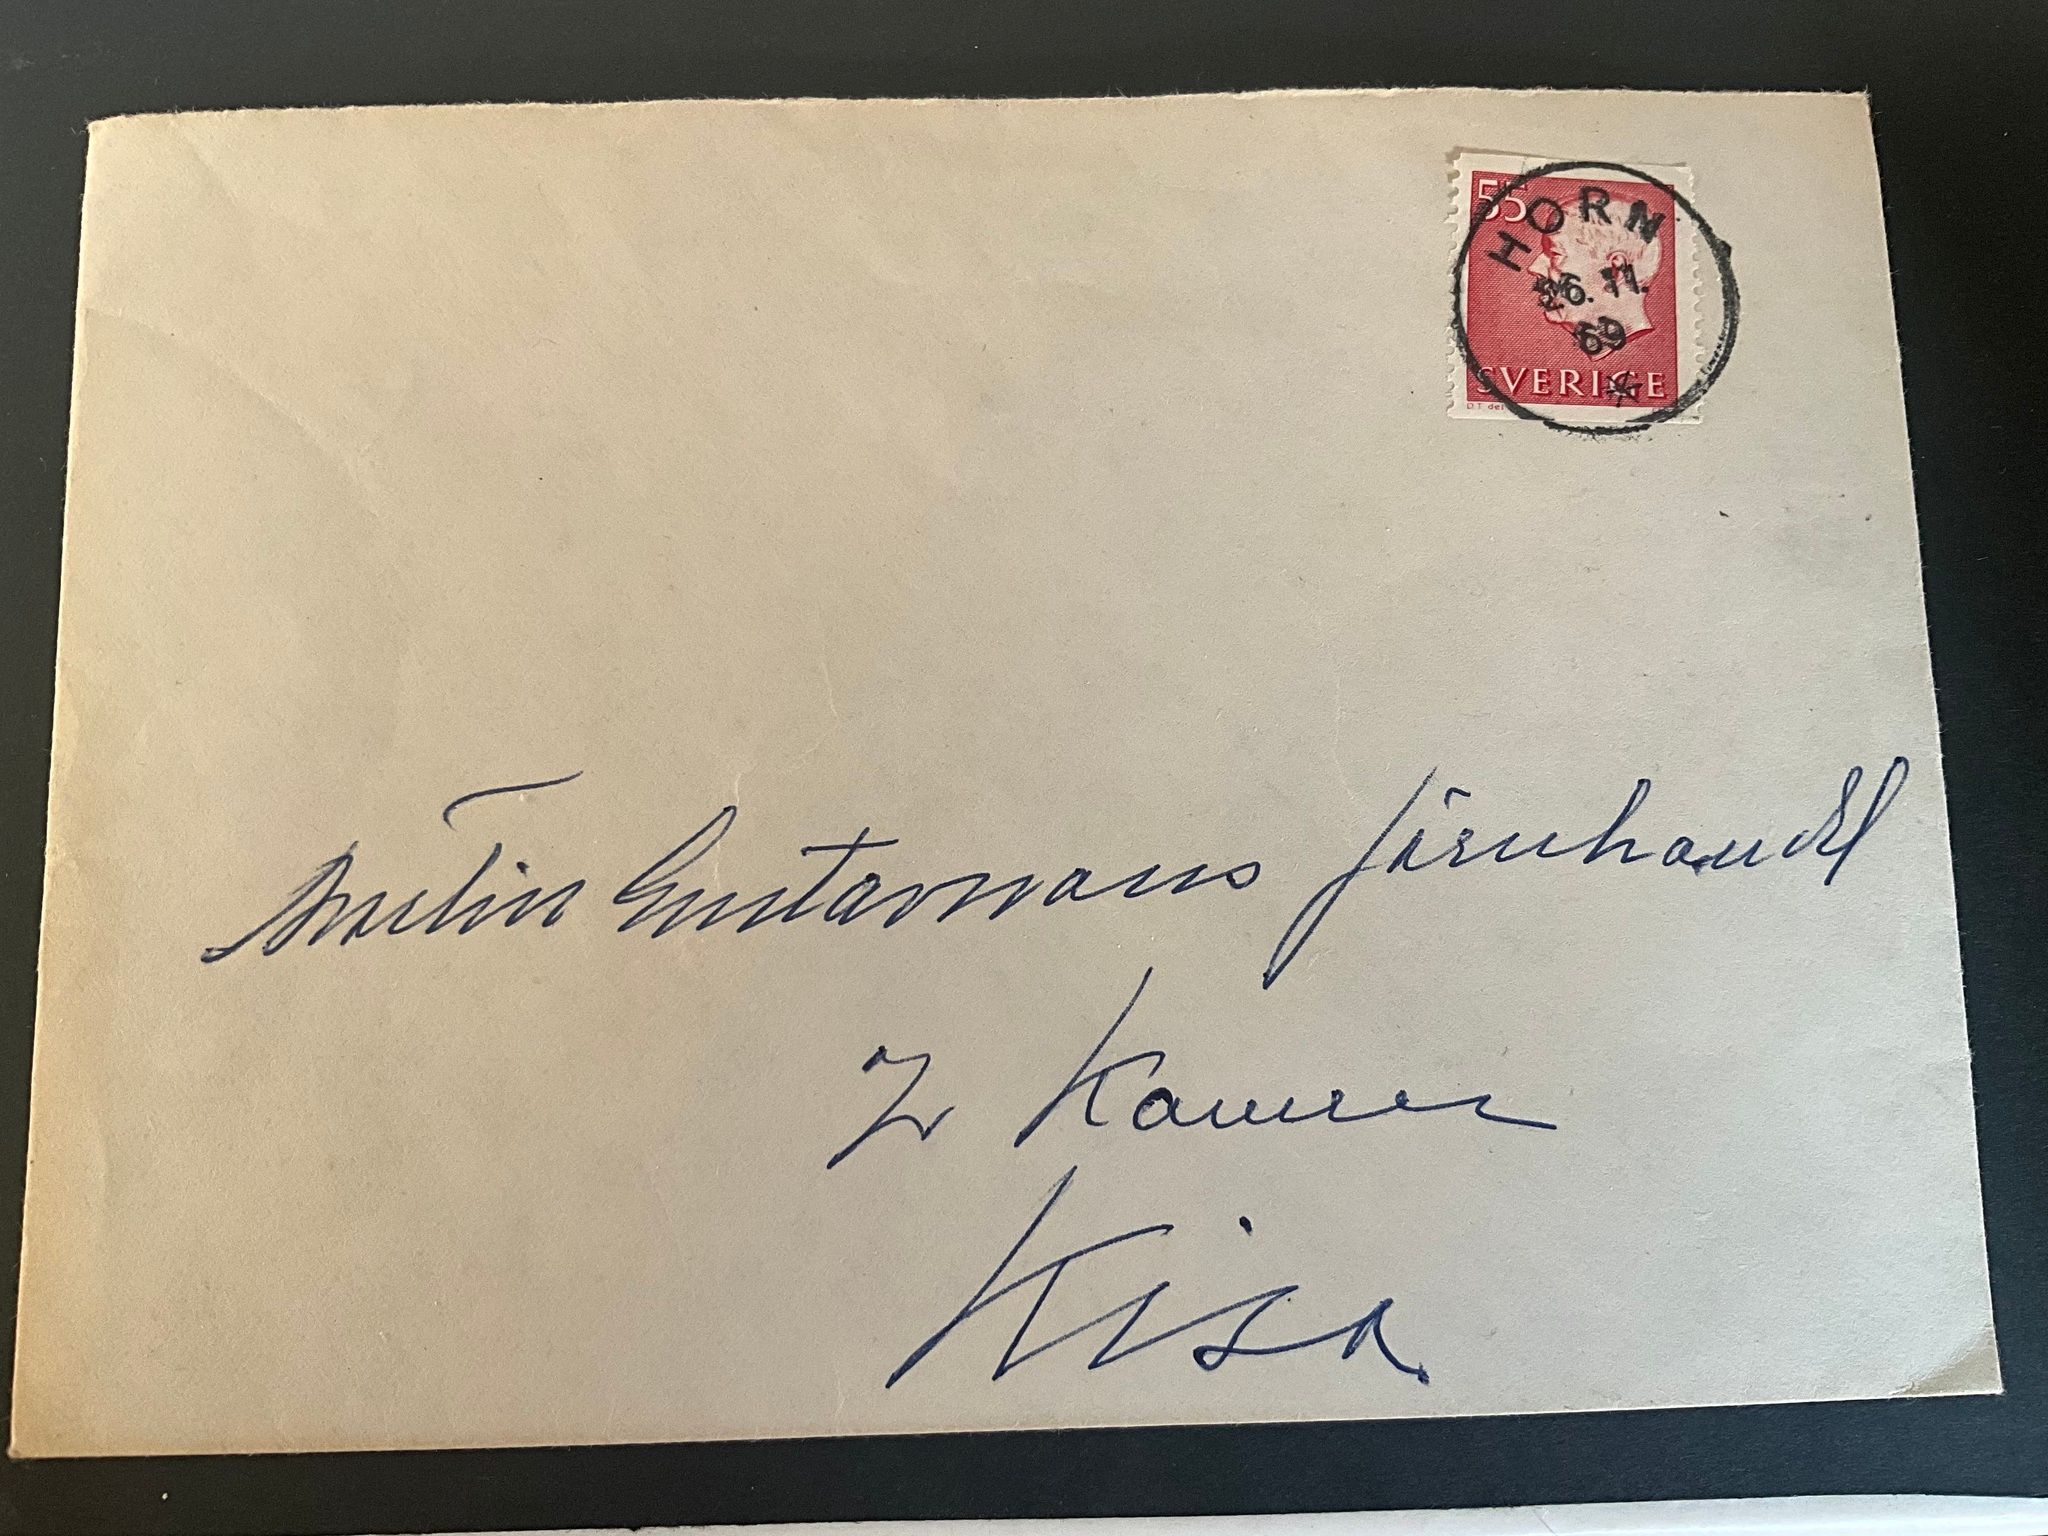 55
HORN
26.11.
69
SVERIGE
D.T del
Martin Gustavssons Järnhandel
Kisa